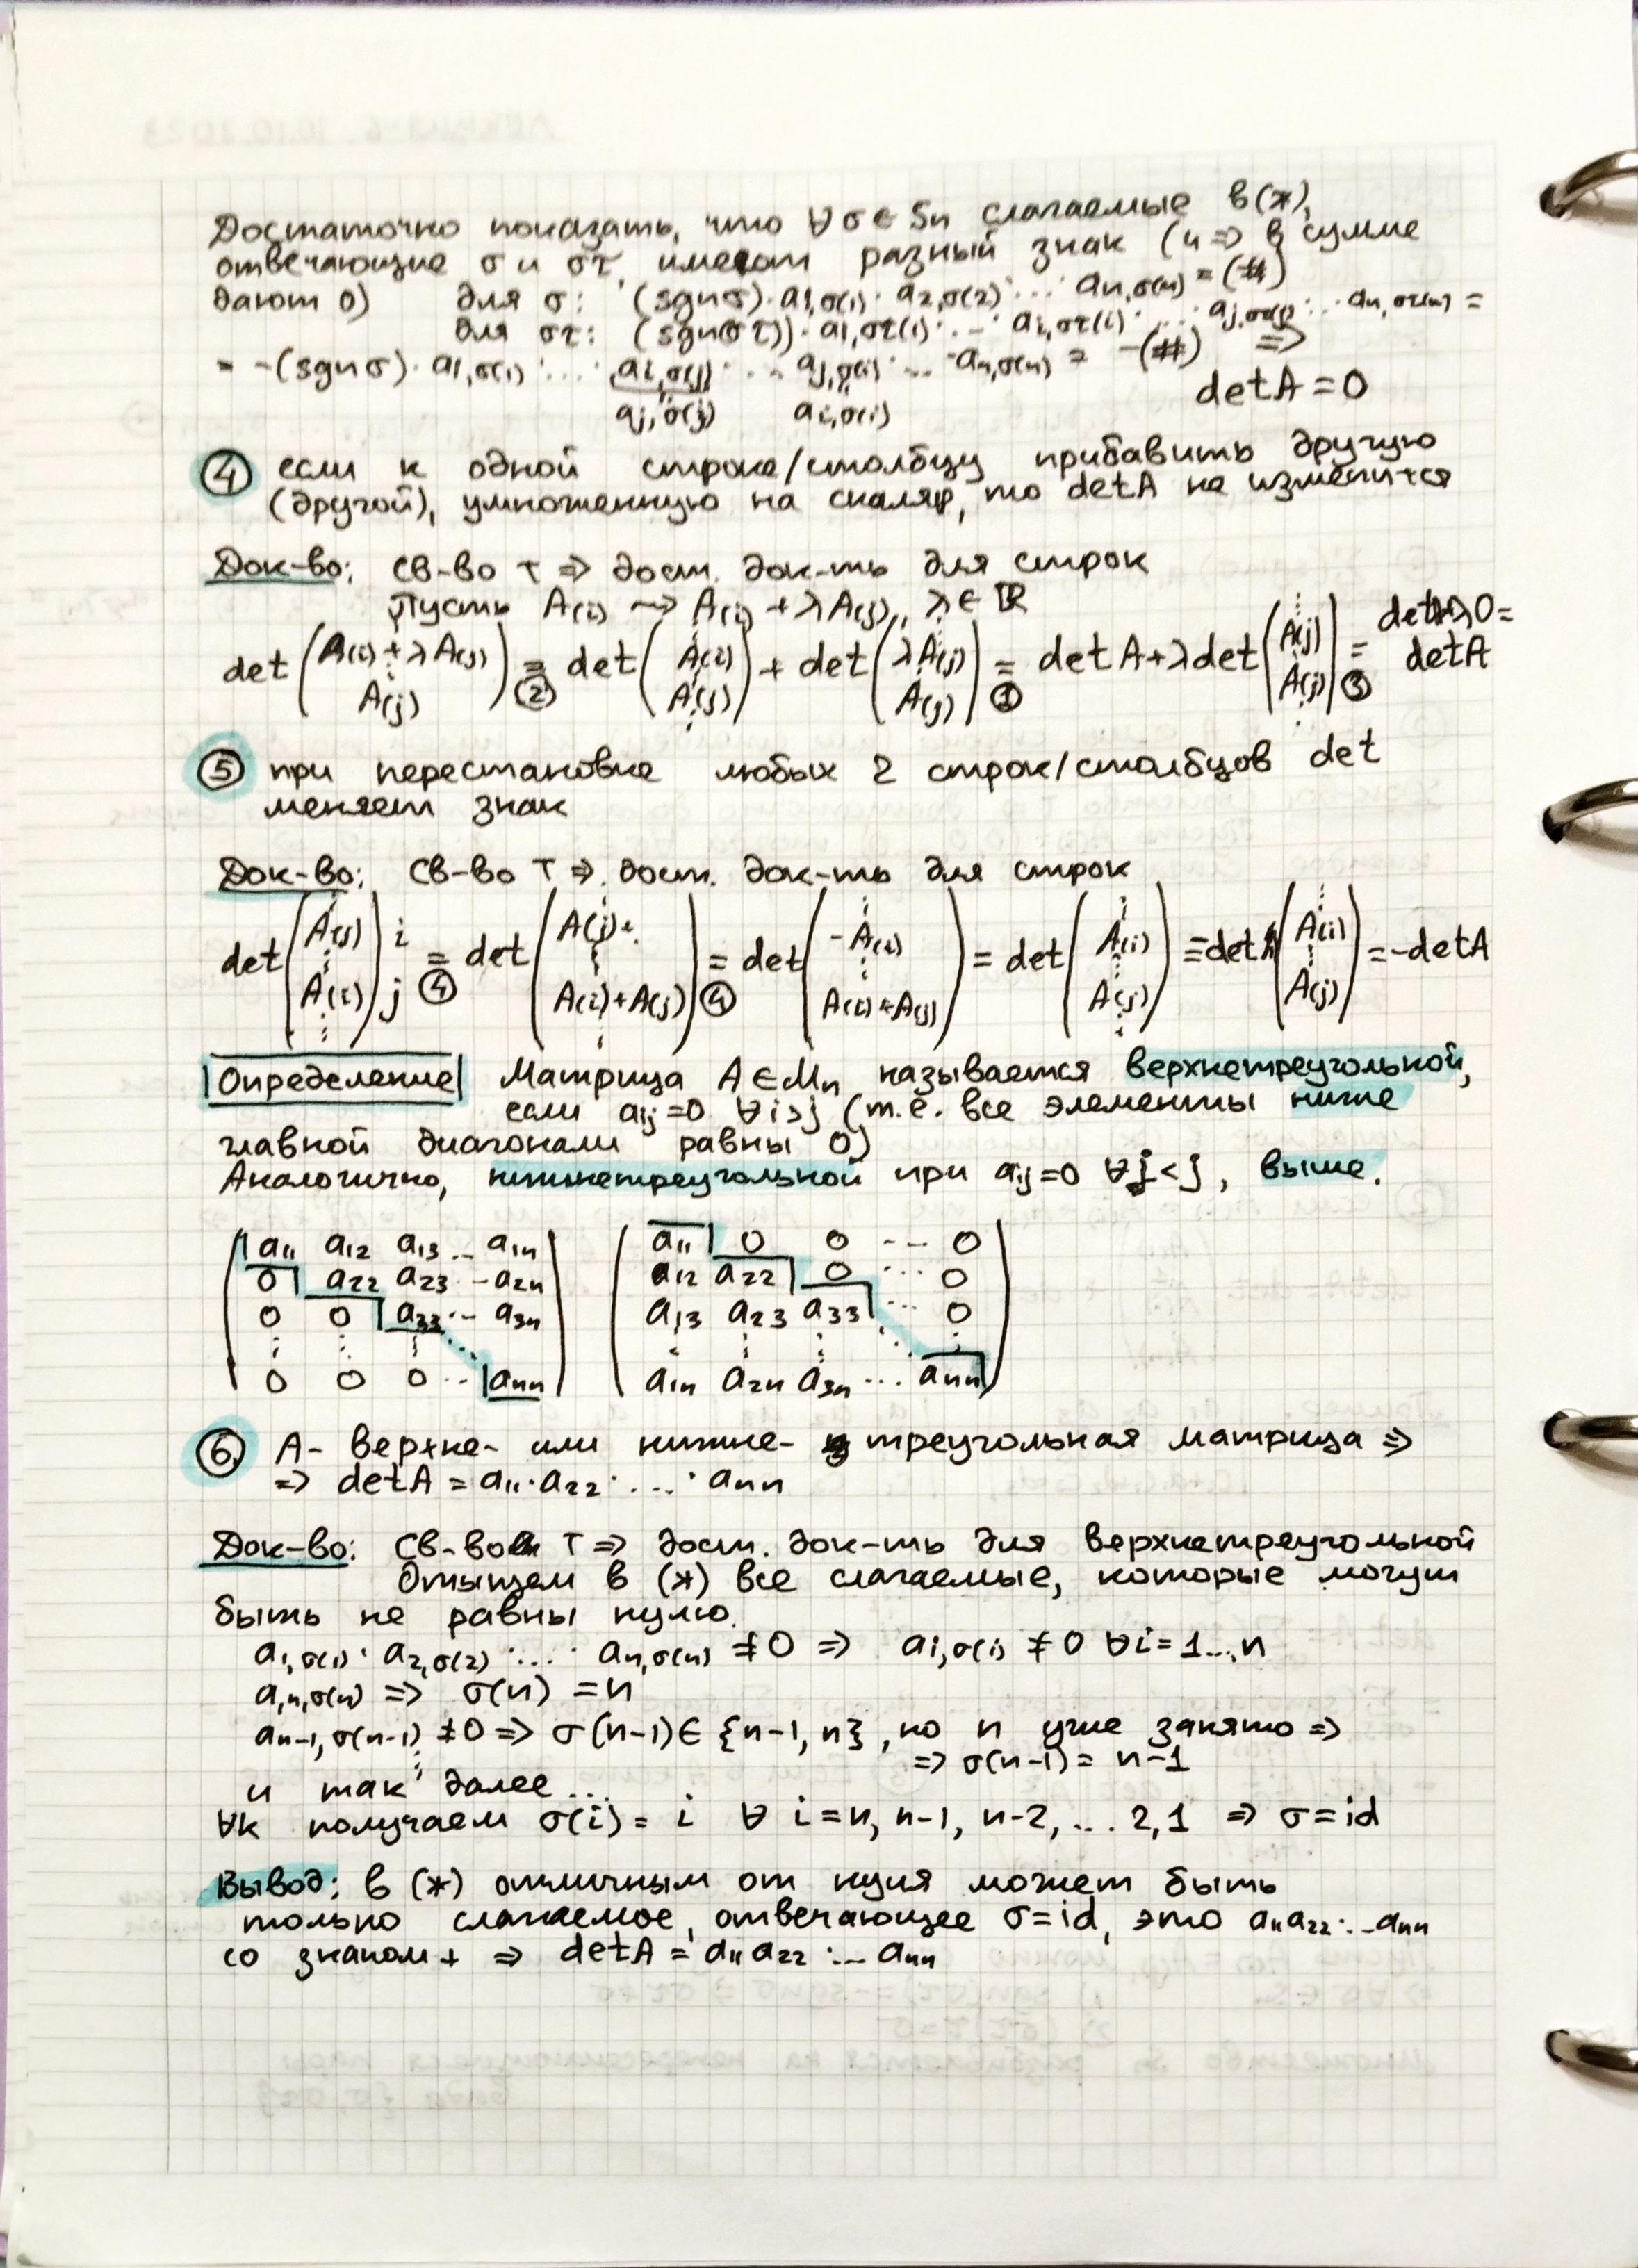 Достаточно показать, что ∀ σ ∈ Sn слагаемые в (*),
отвечающие σ и στ, имеют разный знак (и => в сумме
дают 0) для σ: (sgnσ)·a1,σ(1)·a2,σ(2)·...·an,σ(n) = (#)
для στ: (sgn(στ))·a1,στ(1)·...·ai,στ(i)·...·aj,στ(j)·...·an,στ(n) =
= -(sgnσ)·a1,σ(1)·...·ai,σ(j)·...·aj,σ(i)·...·an,σ(n) = -(#) =>
aj,σ(j) ai,σ(i) detA = 0
④ если к одной строке/столбцу прибавить другую
(другой), умноженную на скаляр, то detA не изменится
Док-во: Св-во T => дост. док-ть для строк
Пусть A(i) → A(i) + λA(j), λ ∈ ℝ
det (A(i) + λA(j) ⋮ A(j)) =② det (A(i) ⋮ A(j)) + det (λA(j) ⋮ A(j)) =① detA + λdet (A(j) ⋮ A(j)) =③ detA+λ0 =
detA
⑤ при перестановке любых 2 строк/столбцов det
меняет знак
Док-во: Св-во T => дост. док-ть для строк
det (A(j) ⋮ A(i) ⋮) i j =④ det (A(j) ⋮ A(i)+A(j)) =④ det (-A(i) ⋮ A(i)+A(j)) = det (A(i) ⋮ A(j)) = -det (A(i) ⋮ A(j)) = -detA
Определение Матрица A ∈ Mn называется верхнетреугольной,
если aij = 0 ∀ i > j (т.е. все элементы ниже
главной диагонали равны 0)
Аналогично, нижнетреугольной при aij = 0 ∀ i < j, выше.
a11 a12 a13 ... a1n a11 0 0 --- 0
0 a22 a23 ... a2n a12 a22 0 ... 0
0 0 a33 ... a3n a13 a23 a33 ... 0
⋮ ⋮ ⋮ ⋱ ⋮ ⋮ ⋮ ⋱ ⋮
0 0 0 ... ann a1n a2n a3n ... ann
⑥ A - верхне- или нижне- треугольная матрица =>
=> detA = a11·a22·...·ann
Док-во: Св-во T => дост. док-ть для верхнетреугольной
Отыщем в (*) все слагаемые, которые могут
быть не равны нулю.
a1,σ(1)·a2,σ(2)·...·an,σ(n) ≠ 0 => ai,σ(i) ≠ 0 ∀ i = 1...,n
an,σ(n) => σ(n) = n
an-1,σ(n-1) ≠ 0 => σ(n-1) ∈ {n-1, n}, но n уже занято =>
=> σ(n-1) = n-1
и так далее ...
∀k получаем σ(i) = i ∀ i = n, n-1, n-2, ... 2, 1 => σ = id
Вывод: в (*) отличным от нуля может быть
только слагаемое, отвечающее σ = id, это a11a22·...ann
со знаком + => detA = a11a22·...ann